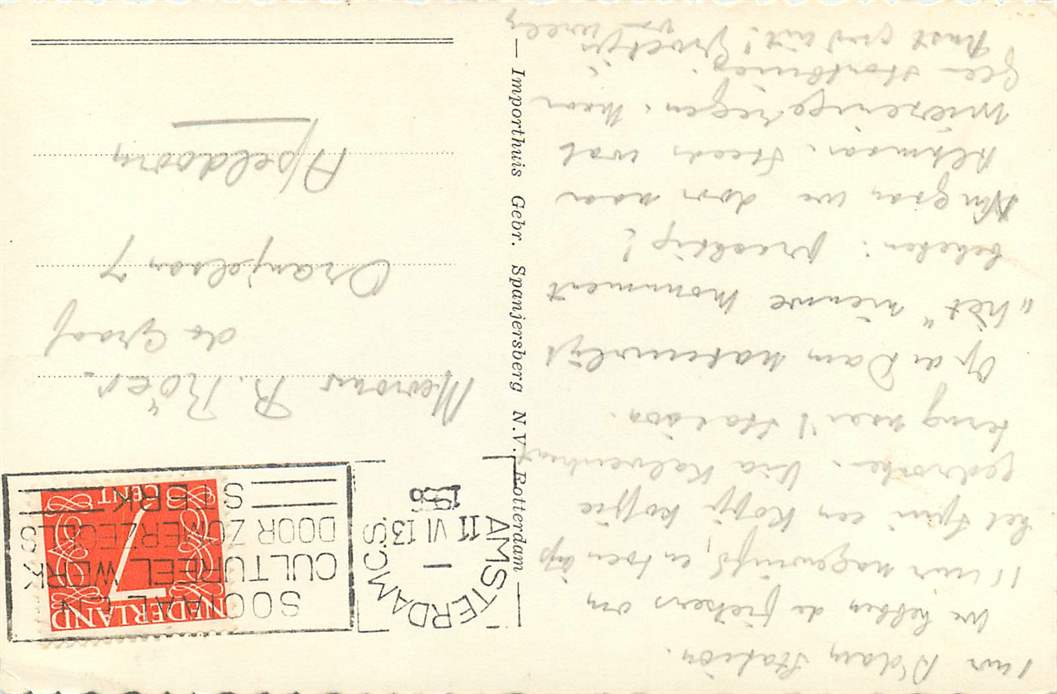 1 uur A'dam Station.
We hebben de fietsers om
11 uur nagewuifd, en toen
het Spui een kopje koffie
gedronken. Via Kalverstraat
terug naar 't Station.
Op de Dam natuurlijk
„hét" nieuwe monument
bekeken: prachtig!
Nu gaan we door naar
Alkmaar. Steeds wat
miezerige regen. Maar
geen stortbuien.
Rust goed uit! Groetjes
van
— Importhuis Gebr. Spanjersberg N.V. Rotterdam —
AMSTERDAM C.S
11 VI 13
1956
SOCIAAL EN
CULTUREEL WERK
DOOR ZOMERZEGELS
STERK
NEDERLAND
7
CENT
Mevrouw R. Röer-
de Graaf
Oranjelaan 7
Apeldoorn